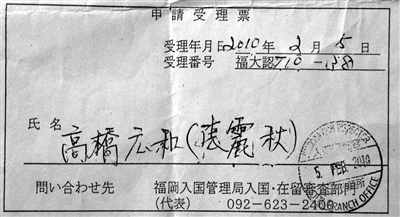 申請受理票
受理年月日 2010年 2月 5日
受理番号 福大認710-138
氏名
高橋広和(張麗秋)
問い合わせ先 福岡入国管理局入国・在留審査部門
(代表) 092-623-2400
5. FEB. 2010
BRANCH OFFICE